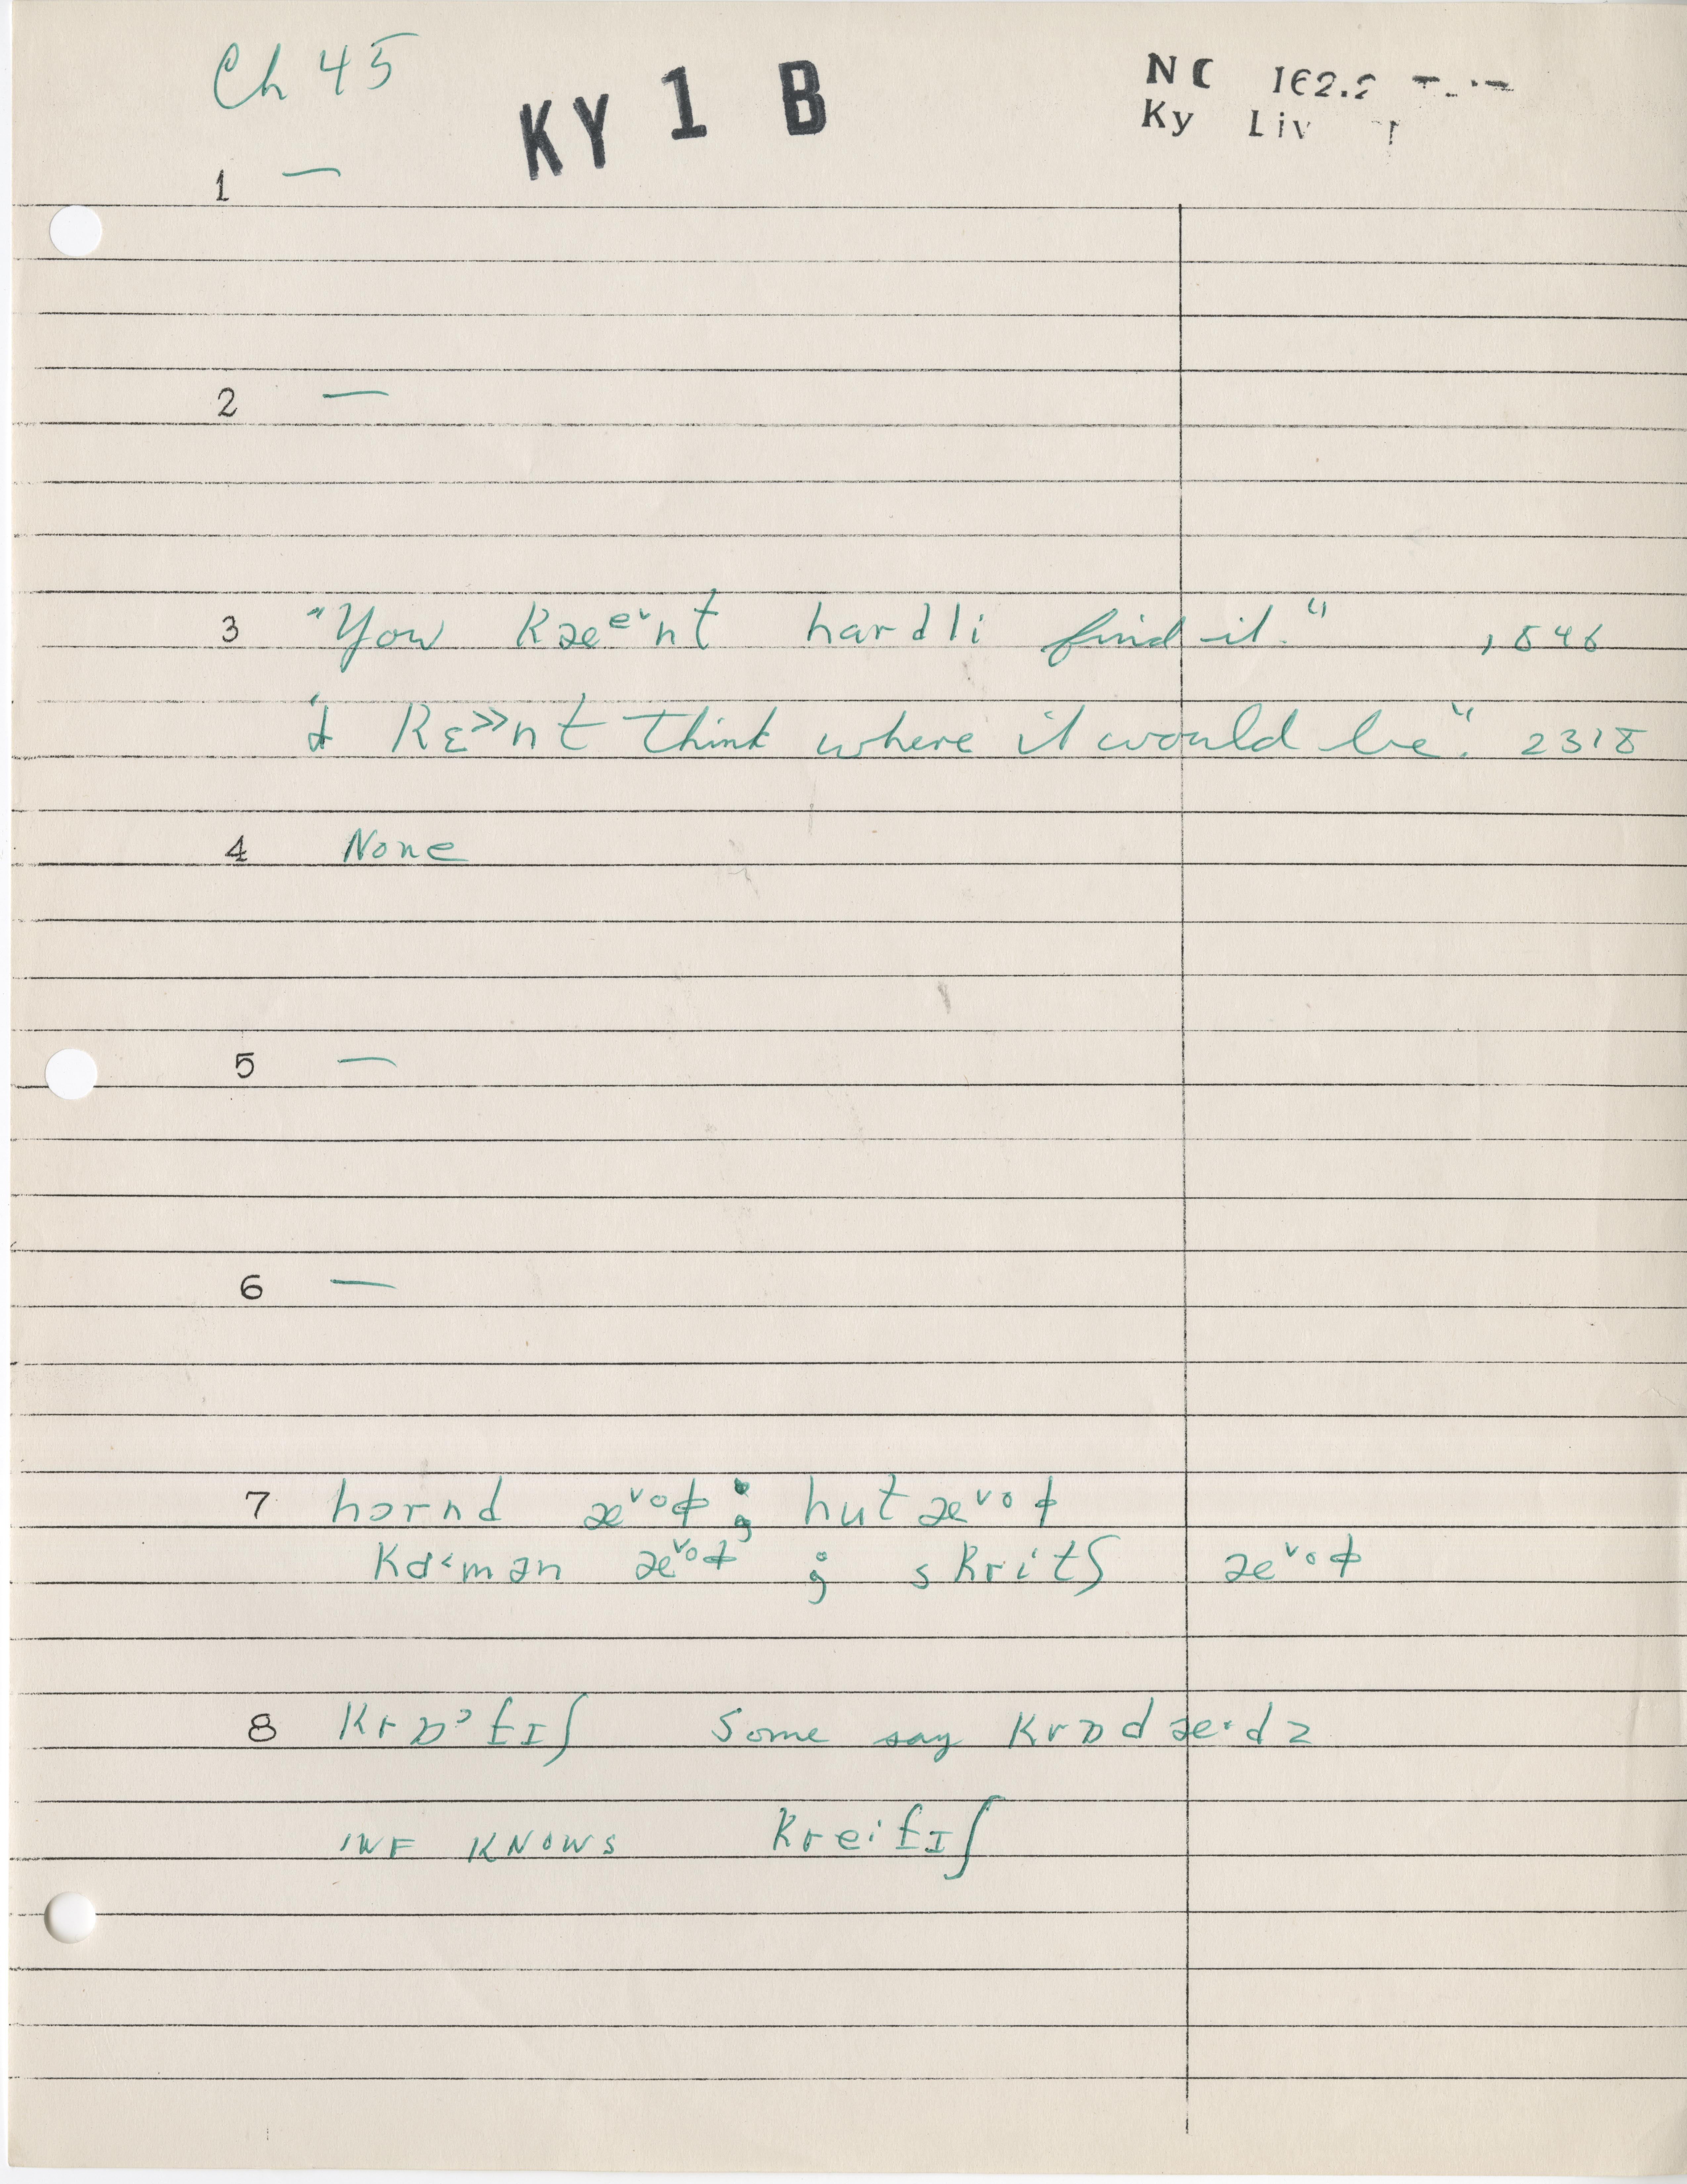 Ch 45
KY 1 B
NC
Ky Liv
1 —
2 —
3 "You kæᵉ˅nt hardli find it." 1846
"I kɛ>>nt think where it would be". 2318
4 None
5 —
6 —
7 hɔrnd æ˅ᵒɫ ; hut æ˅ᵒɫ
kɑ<mən æ˅ᵒɫ ; skritʃ æ˅ᵒɫ
8 krɒᵓfɪʃ some say krɒdæ·dz
INF KNOWS kreifɪʃ